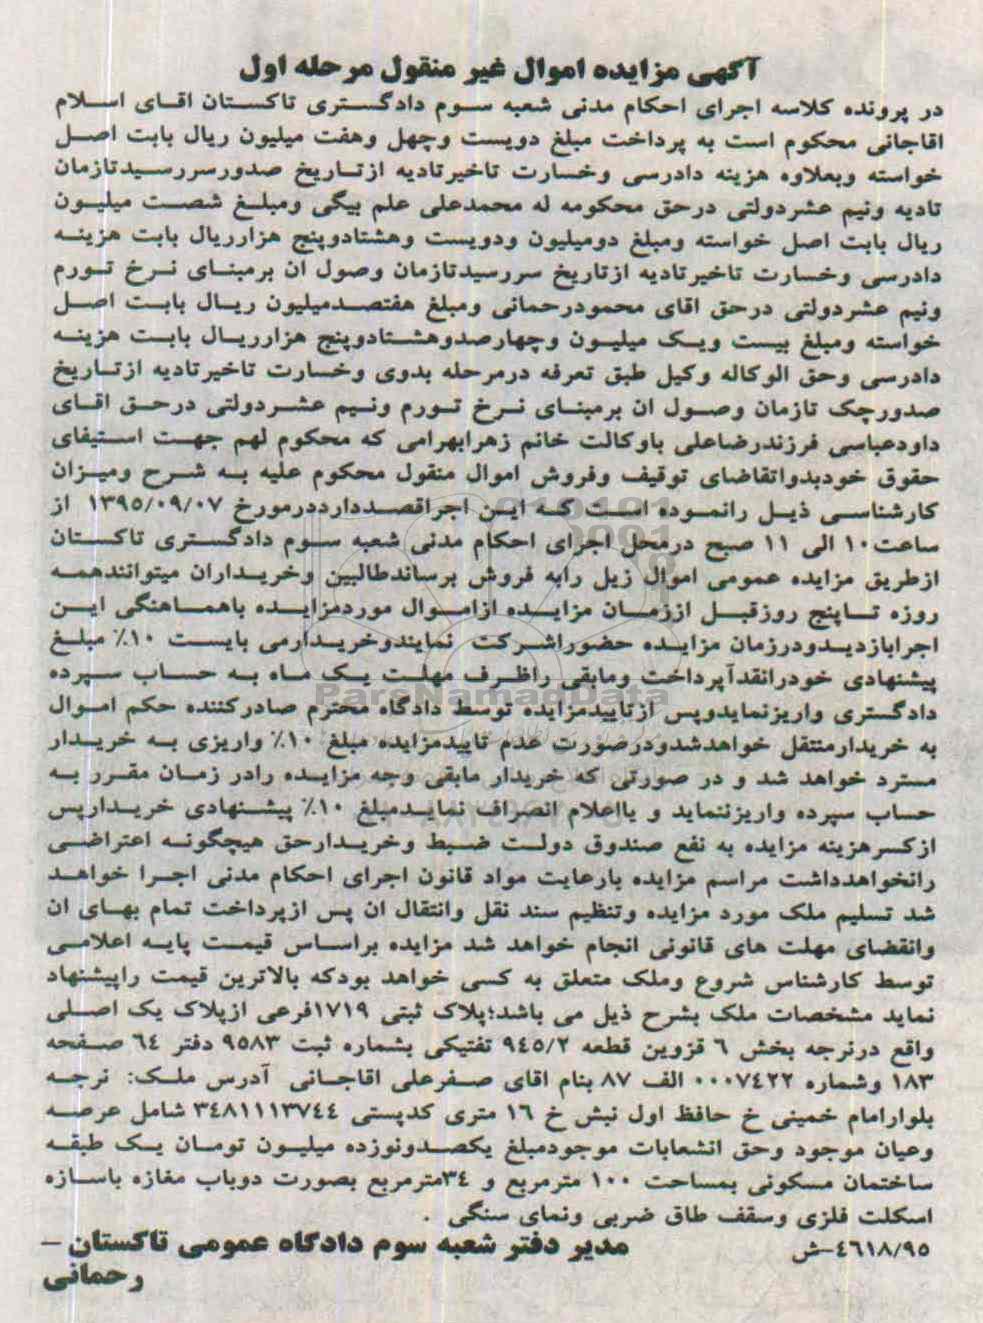 آگهی مزایده اموال غیر منقول مرحله اول
در پرونده کلاسه اجرای احکام مدنی شعبه سوم دادگستری تاکستان اقای اسلام
اقاجانی محکوم است به پرداخت مبلغ دویست وچهل وهفت میلیون ریال بابت اصل
خواسته وبعلاوه هزینه دادرسی وخسارت تاخیرتادیه ازتاریخ صدورسررسیدتازمان
تادیه ونیم عشردولتی درحق محکومه له محمدعلی علم بیگی ومبلغ شصت میلیون
ریال بابت اصل خواسته ومبلغ دومیلیون ودویست وهشتادوپنج هزارریال بابت هزینه
دادرسی وخسارت تاخیرتادیه ازتاریخ سررسیدتازمان وصول ان برمبنای نرخ تورم
ونیم عشردولتی درحق اقای محمودرحمانی ومبلغ هفتصدمیلیون ریال بابت اصل
خواسته ومبلغ بیست ویک میلیون وچهارصدوهشتادوپنج هزارریال بابت هزینه
دادرسی وحق الوکاله وکیل طبق تعرفه درمرحله بدوی وخسارت تاخیرتادیه ازتاریخ
صدورچک تازمان وصول ان برمبنای نرخ تورم ونیم عشردولتی درحق اقای
داودعباسی فرزندرضاعلی باوکالت خانم زهرابهرامی که محکوم لهم جهت استیفای
حقوق خودبدواتقاضای توقیف وفروش اموال منقول محکوم علیه به شرح ومیزان
کارشناسی ذیل رانموده است که این اجراقصدداردرمورخ ۱۳۹۵/۰۹/۰۷ از
ساعت۱۰ الی ۱۱ صبح درمحل اجرای احکام مدنی شعبه سوم دادگستری تاکستان
ازطریق مزایده عمومی اموال زیل رابه فروش برساندطالبین وخریداران میتوانندهمه
روزه تاپنج روزقبل اززمان مزایده ازاموال موردمزایده باهماهنگی این
اجرابازدیدودرزمان مزایده حضوراشرکت نمایندوخریدارمی بایست ۱۰٪ مبلغ
پیشنهادی خودرانقدآپرداخت ومابقی راظرف مهلت یک ماه به حساب سپرده
دادگستری واریزنمایدوپس ازتاییدمزایده توسط دادگاه محترم صادرکننده حکم اموال
به خریدارمنتقل خواهدشدودرصورت عدم تاییدمزایده مبلغ ۱۰٪ واریزی به خریدار
مسترد خواهد شد و در صورتی که خریدار مابقی وجه مزایده رادر زمان مقرر به
حساب سپرده واریزننماید و یااعلام انصراف نمایدمبلغ ۱۰٪ پیشنهادی خریدارپس
ازکسرهزینه مزایده به نفع صندوق دولت ضبط وخریدارحق هیچگونه اعتراضی
رانخواهدداشت مراسم مزایده بارعایت مواد قانون اجرای احکام مدنی اجرا خواهد
شد تسلیم ملک مورد مزایده وتنظیم سند نقل وانتقال ان پس ازپرداخت تمام بهای ان
وانقضای مهلت های قانونی انجام خواهد شد مزایده براساس قیمت پایه اعلامی
توسط کارشناس شروع وملک متعلق به کسی خواهد بودکه بالاترین قیمت راپیشنهاد
نماید مشخصات ملک بشرح ذیل می باشد؛پلاک ثبتی ۱۷۱۹فرعی ازپلاک یک اصلی
واقع درنرجه بخش ۶ قزوین قطعه ۹۴۵/۲ تفتیکی بشماره ثبت ۹۵۸۳ دفتر ۶۴ صفحه
۱۸۳ وشماره ۰۰۰۷۴۲۲ الف ۸۷ بنام اقای صفرعلی اقاجانی آدرس ملک: نرجه
بلوارامام خمینی خ حافظ اول نبش خ ۱۶ متری کدپستی ۳۴۸۱۱۱۳۷۴۴ شامل عرصه
وعیان موجود وحق انشعابات موجودمبلغ یکصدونوزده میلیون تومان یک طبقه
ساختمان مسکونی بمساحت ۱۰۰ مترمربع و ۳۴مترمربع بصورت دوباب مغازه باسازه
اسکلت فلزی وسقف طاق ضربی ونمای سنگی .
۴۶۱۸/۹۵-ش مدیر دفتر شعبه سوم دادگاه عمومی تاکستان -
رحمانی
ParsNamadData